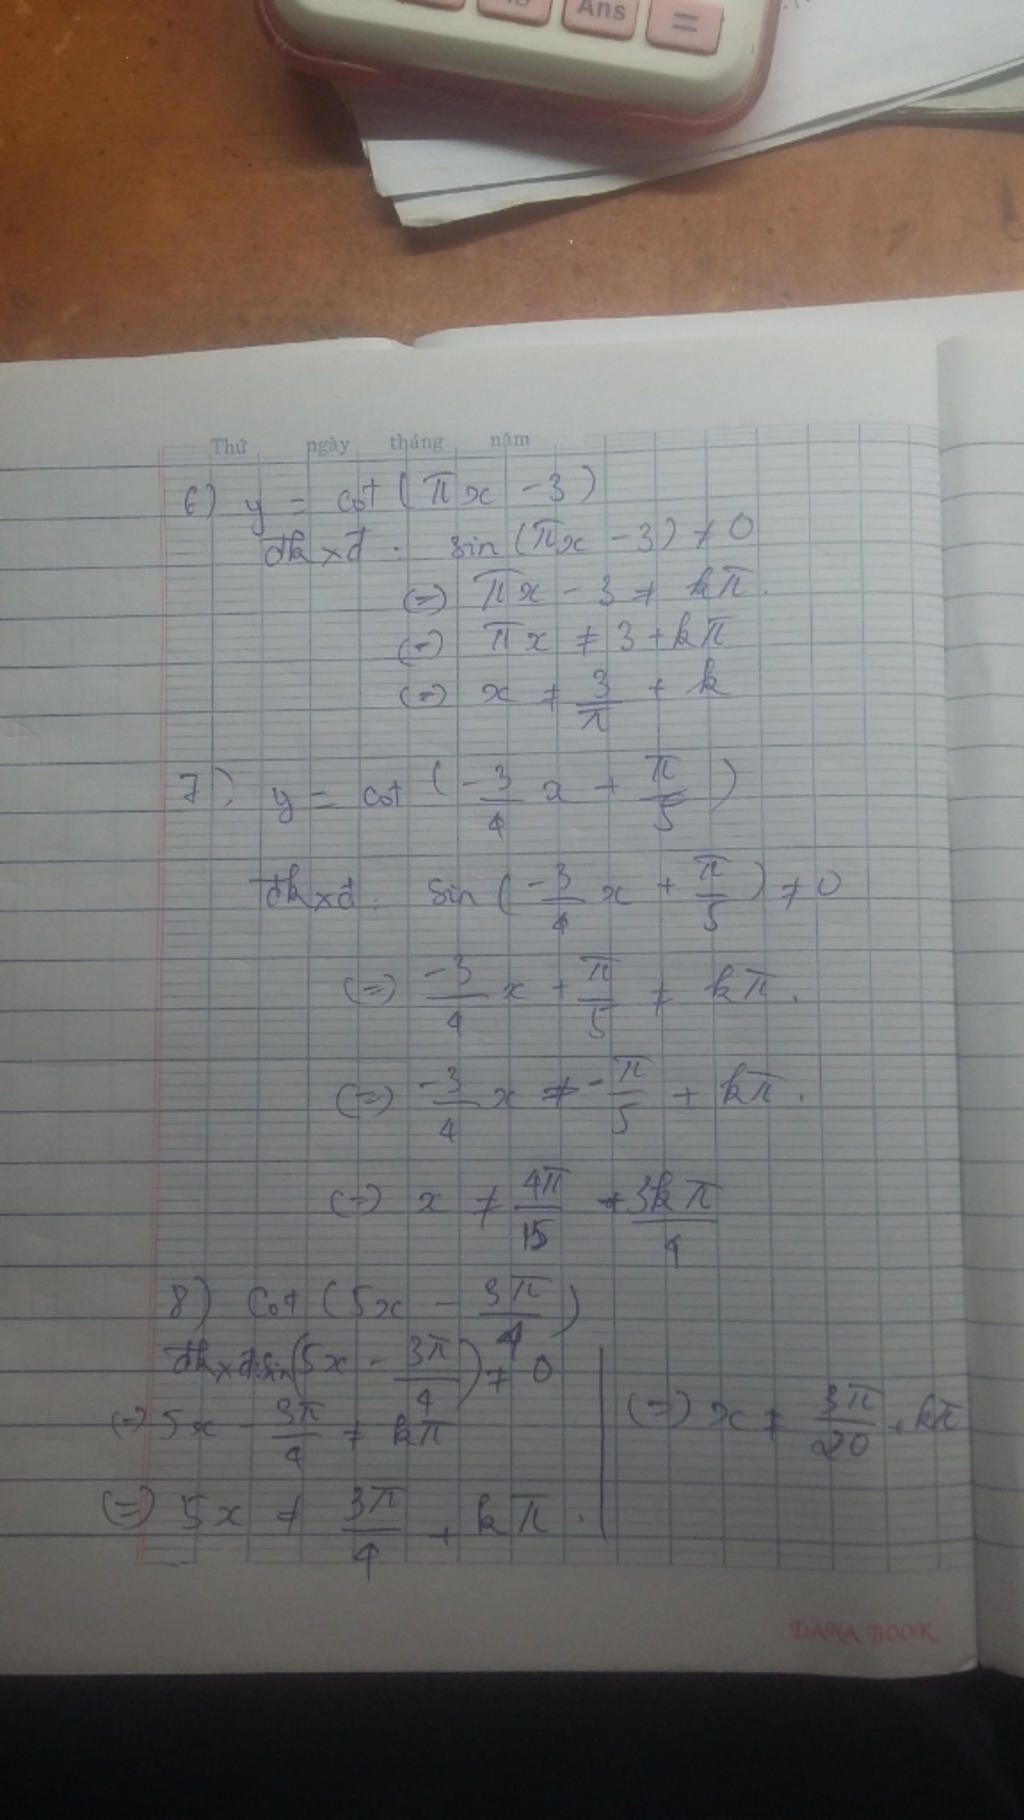 Ans =
Thứ ngày tháng năm
6) y = cot (πx - 3)
đkxđ : sin (πx - 3) ≠ 0
(=) πx - 3 ≠ kπ.
(=) πx ≠ 3 + kπ
(=) x ≠ 3/π + k
7) y = cot (-3/4 x + π/5)
đkxđ : sin (-3/4 x + π/5) ≠ 0
(=) -3/4 x + π/5 ≠ kπ.
(=) -3/4 x ≠ -π/5 + kπ.
(=) x ≠ 4π/15 + 3kπ/4
8) Cot (5x - 3π/4)
đkxđ: sin(5x - 3π/4) ≠ 0
(=) 5x - 3π/4 ≠ kπ
(=) 5x ≠ 3π/4 + kπ.
(=) x ≠ 3π/20 + kπ
DANA BOOK